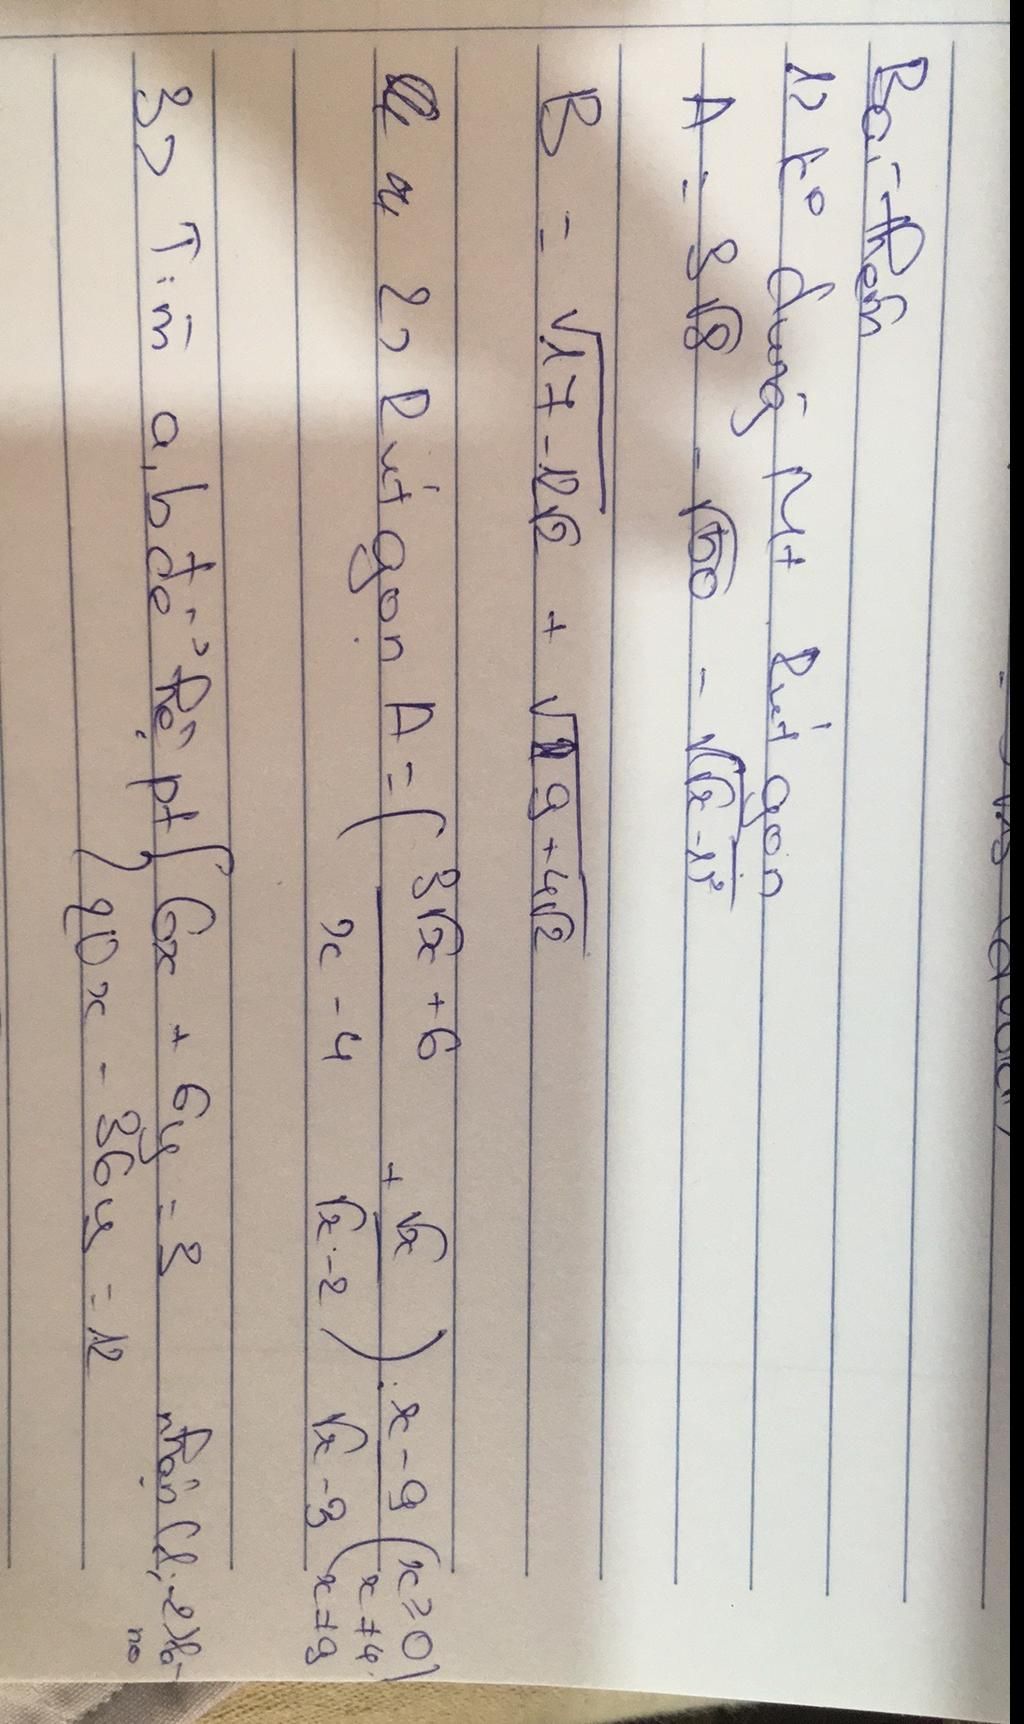 Bài thêm
1> ko dùng MT Rút gọn
A = 3√8 - √50 - √(√x - 1)²
B = √17-12√2 + √9+4√2
2> Rút gọn A = ( 3√x + 6 / x - 4 + √x / √x - 2 ) : x - 9 / √x - 3 ( x ≥ 0 x ≠ 4 x ≠ 9
3> Tìm a, b để hệ pt { 6x + 6y = 3
x - 36y = 12
nhận (1; -2) là no